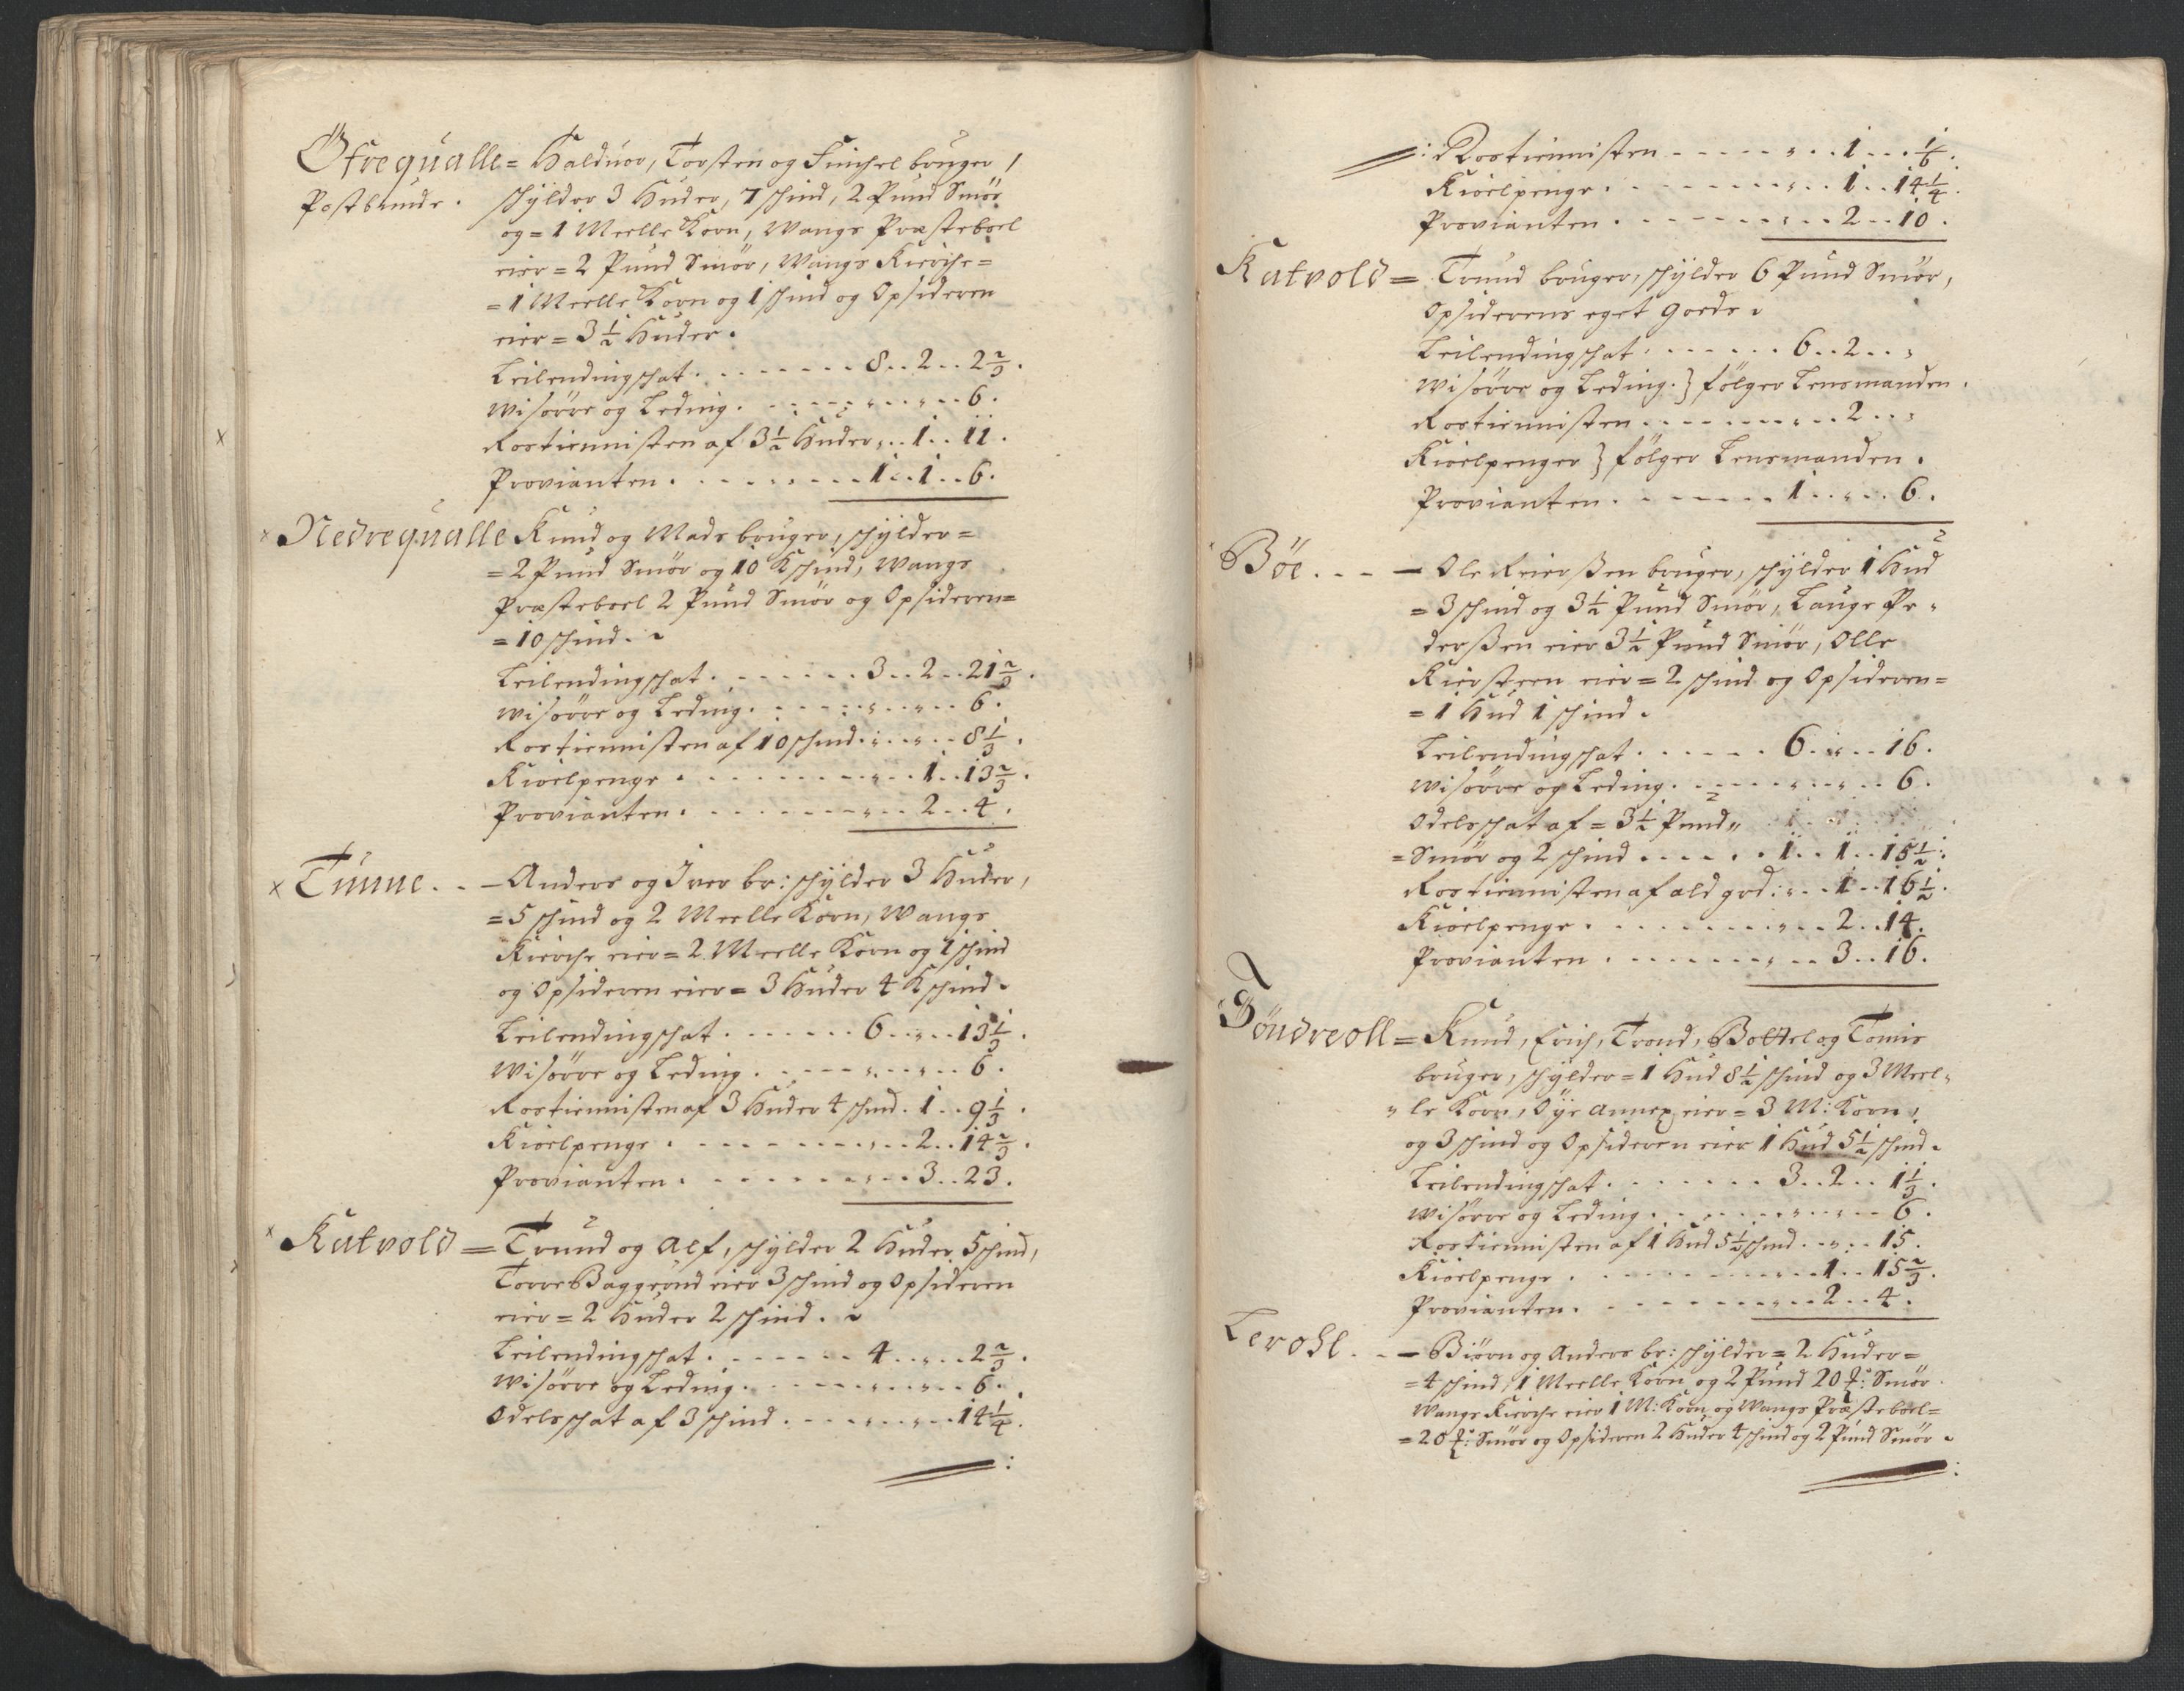 Öfrequalle = Halduor, Torsten og Finchel bruger /
Postbunde . schylder 3 Huder, 7 schind, 2 Pund Smör
og = 1 Meelle Korn, Wangs Præsteboel
eier = 2 Pund Smör, Wangs Kierche =
= 1 Meelle Korn og 1 schind og Opsideren
eier = 3 1/2 Huder .
Leilendingschat . . . . . . . 8 .. 2 .. 2 2/3 .
Wisörre og Leding . . . . . „ .. „ .. 6 .
Rostiennisten af 3 1/2 Huder „ .. 1 .. 11 .
Provianten . . . . . . . 1 .. 1 .. 6 .
x Nedrequalle Knud og Mads bruger, schylder =
= 2 Pund Smör og 10 Kschind, Wangs
Præsteboel 2 Pund Smör og Opsideren =
= 10 schind .
Leilendingschat . . . . . . 3 .. 2 .. 21 2/3 .
Wisörre og Leding . . . . . „ .. „ .. 6 .
Rostiennisten af 10 schind . „ .. „ .. 8 1/3 .
Kiöelpenge . . . . . . . „ .. 1 .. 13 2/3 .
Provianten . . . . . . . „ .. 2 .. 4 .
x Tunne . . — Anders og Iver br: schylder 3 Huder,
= 5 schind og 2 Meelle Korn, Wangs
Kierche eier = 2 Meelle Korn og 1 schind
og Opsideren eier = 3 Huder 4 Kschind .
Leilendingschat . . . . . . 6 .. „ .. 13 1/3 .
Wisörre og Leding . . . . . „ .. „ .. 6 .
Rostiennisten af 3 Huder 4 schind . 1 .. 9 1/3 .
Kiöelpenge . . . . . . . „ .. 2 .. 14 2/3 .
Provianten . . . . . . . „ .. 3 .. 23 .
x Katvold = Trund og Alf, schylder 2 Huder 5 schind,
Torre Baggerud eier 3 schind og Opsideren
eier = 2 Huder 2 schind .
Leilendingschat . . . . . . 4 .. „ .. 2 2/3 .
Wisörre og Leding . . . . . „ .. „ .. 6 .
Odelsschat af 3 schind . . . „ .. „ .. 14 1/4 .
:
: Rostiennisten . . . . . „ .. 1 .. 1/6 .
Kiöelpenge . . . . . . . „ .. 1 .. 14 1/4 .
Provianten . . . . . . . „ .. 2 .. 10 .
Katvold = Trund bruger, schylder 6 Pund Smör,
Opsiderens eget goeds .
Leilendingschat . . . . . . 6 .. 2 .. „
Wisörre og Leding . } fölger Lensmanden .
Rostiennisten . . . . . . . „ .. 2 .. „
Kiöelpenger } fölger Lensmanden .
Provianten . . . . . . . 1 .. „ .. 6 .
Böe . . . — Ole Reierßen bruger, schylder 1 Hud
= 3 schind og 3 1/2 Pund Smör, Lauge Pe „
derßen eier 3 1/2 Pund Smör, Olle
Kiersteen eier = 2 schind og Opsideren =
= 1 Hud 1 schind .
Leilendingschat . . . . . . 6 .. „ .. 16 .
Wisörre og Leding . . . . . „ .. „ .. 6 .
Odelsschat af = 3 1/2 Pund „
= Smör og 2 schind . . . . . 1 .. 1 .. 15 1/2 .
Rostiennisten af ald god: „ .. 1 .. 16 1/2 .
Kiöelpenge . . . . . . . „ .. 2 .. 14 .
Provianten . . . . . . . „ .. 3 .. 16 .
Söndreoll = Knud, Erich, Trond, Bottel og Tomis
bruger, schylder = 1 Hud 8 1/2 schind og 3 Meel „
„ le Korn, Öye annex eier = 3 M: Korn,
og 3 schind og Opsideren eier 1 Hud 5 1/2 schind .
Leilendingschat . . . . . . 3 .. 2 .. 1 1/3 .
Wisörre og Leding . . . . . „ .. „ .. 6 .
Rostiennisten af 1 Hud 5 1/2 schind . . „ .. 15 .
Kiöelpenge . . . . . . . „ .. 1 .. 15 2/3 .
Provianten . . . . . . . „ .. 2 .. 4 .
Lerohl . . — Biörn og Anders br: schylder = 2 Huder =
= 4 schind, 1 Meelle Korn og 2 Pund 20 ℔: Smör .
Wangs Kierche eier 1 M: Korn og Wangs Præsteboel =
= 20 ℔: Smör og Opsideren 2 Huder 4 schind og 2 Pund Smör .
: